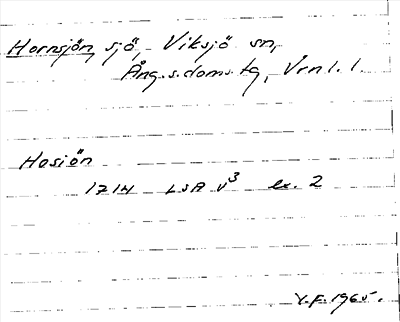 Hornsjön, sjö, Viksjö sn,
Ång.s.doms.tg, Vrnl. l.
Hosiön
1714 LSA V³ ex. 2
Y.F. 1965.